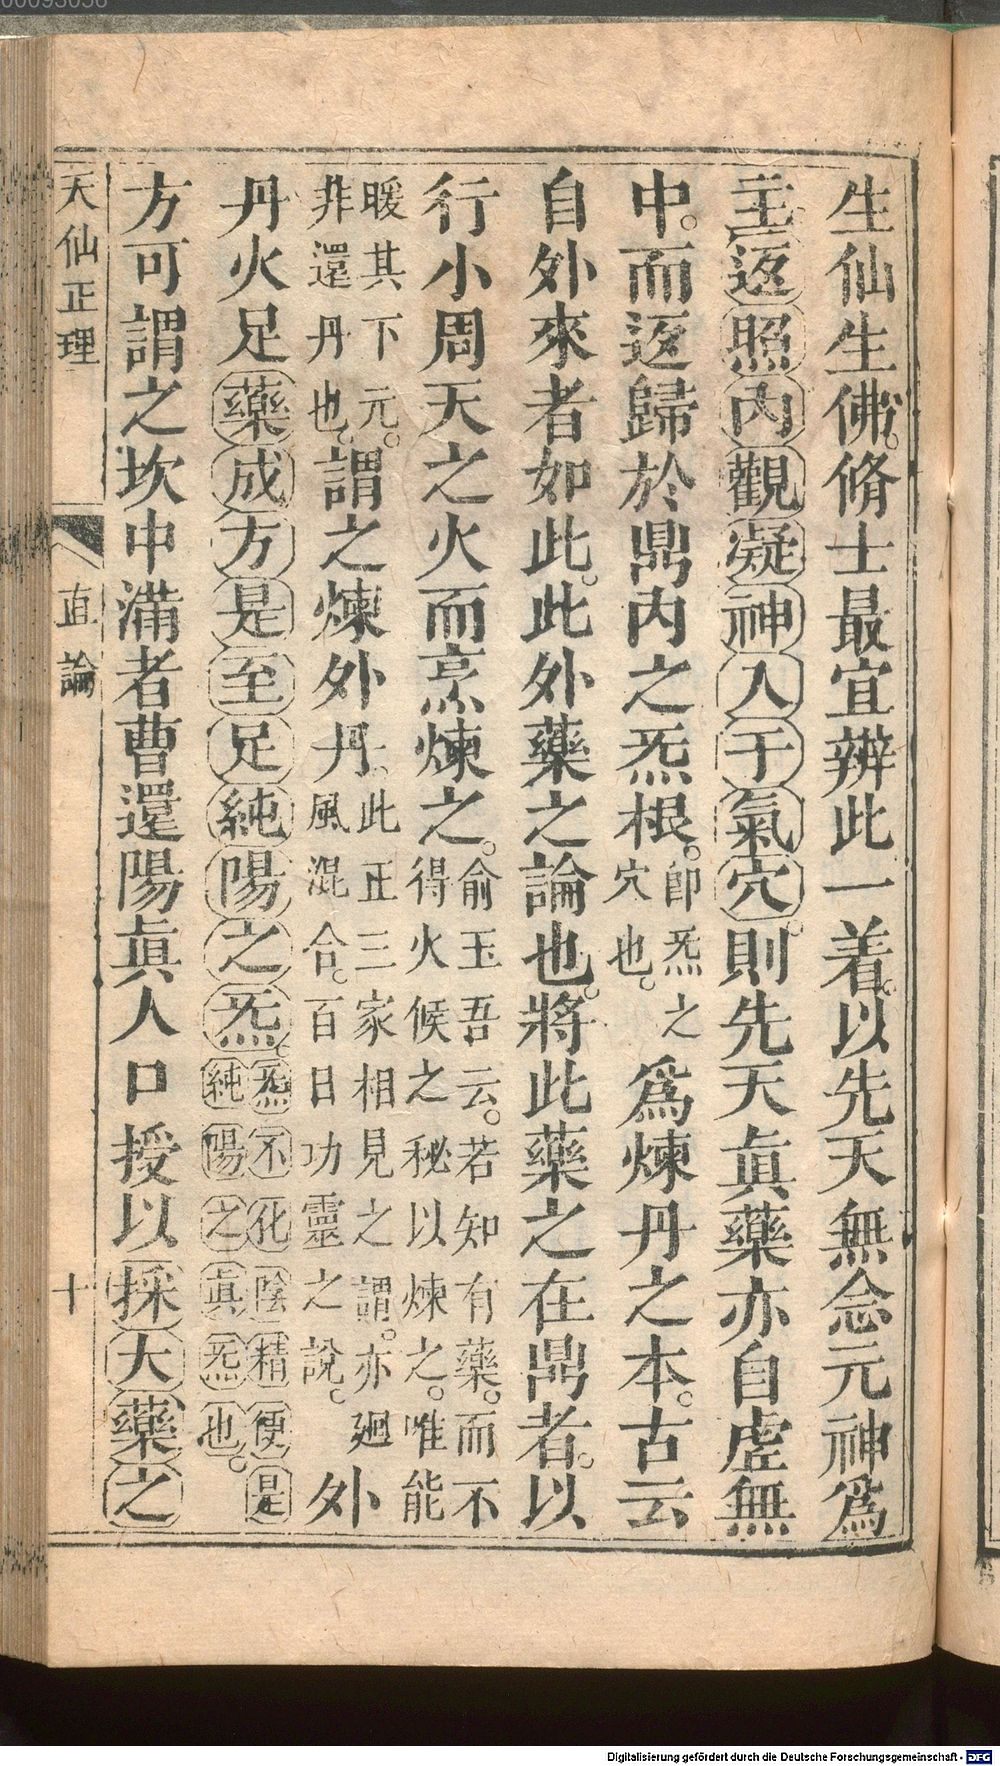 生仙生佛。脩士最宜辨此一着。以先天無念元神爲
主。返照內觀凝神入于氣穴。則先天眞藥亦自虛無
中。而返歸於鼎內之炁根。卽炁之穴也。爲煉丹之本。古云
自外來者如此。此外藥之論也。將此藥之在鼎者。以
行小周天之火而烹煉之。俞玉吾云。若知有藥。而不得火候之秘以煉之。唯能
暖其下元。非還丹也。謂之煉外丹。此正三家相見之謂。亦廻風混合。百日功靈之說。外
丹火足藥成方是至足純陽之炁。炁不化陰精便是純陽之眞炁也。
方可謂之坎中滿者曹還陽眞人口授以採大藥之
天仙正理
直論
十
00093056
Digitalisierung gefördert durch die Deutsche Forschungsgemeinschaft - DFG